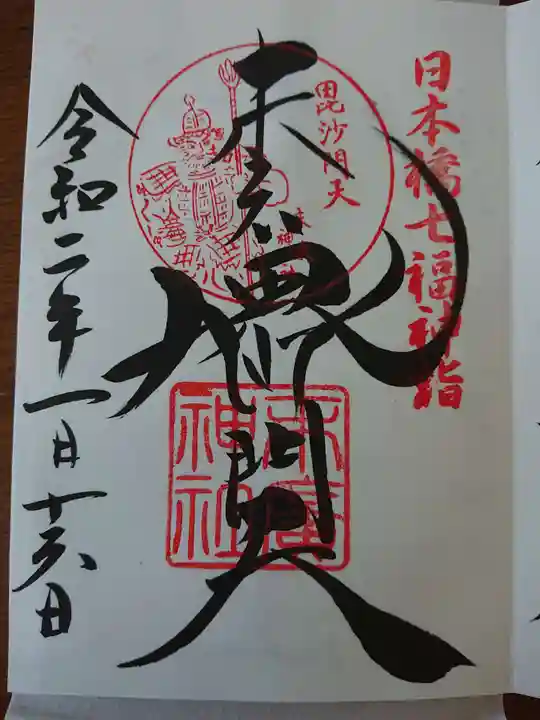 日本橋七福神詣
毘沙門天
末廣毘沙門天
末廣
神社
令和二年一月十六日